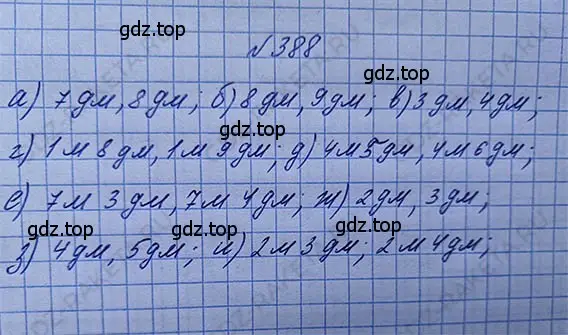 gdz.top
№388
gdz.top
а) 7дм, 8дм; б) 8дм, 9дм; в) 3дм, 4дм;
gdz.top
г) 1м 8дм, 1м 9дм; д) 4м 5дм, 4м 6дм;
gdz.top
е) 7м 3дм, 7м 4дм; ж) 2дм, 3дм;
gdz.top gdz.top
з) 4дм, 5дм; и) 2м 3дм; 2м 4дм;
gdz.top